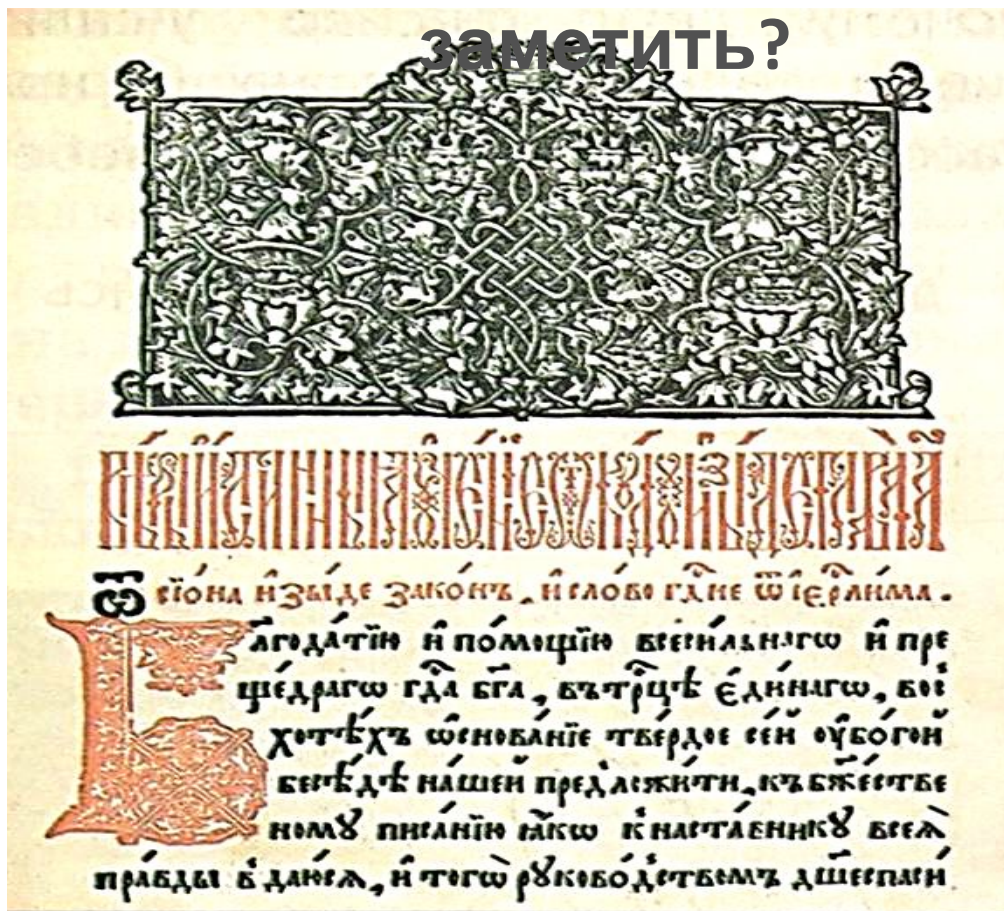 заметить?
Ѿ сїо́на и҆зы́де зако́нъ, и҆ сло́во гдⷭ҇не ѿ і҆ерⷭ҇ли́ма.
Бл҃года́тїю и҆ по́мощїю всеси́льнагѡ и҆ пре
ще́драгѡ гдⷭ҇а бг҃а, въ трⷪ҇цѣ є҆ди́нагѡ, вос
хотѣ́хъ ѡ҆снова́нїе тве́рдое се́й ᲂу҆бо́гой
бесѣ́дѣ на́шей предложи́ти, къ бжⷭ҇е́стве
ному̀ писа́нїю ꙗ҆́кѡ к̾ наста́внику всеѧ̀
пра́вды в̾даю́сѧ, и҆ тогѡ̀ руково́дствомъ дш҃еспасе́н